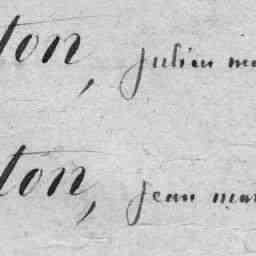 ton, Julien ma
ton, Jean mar